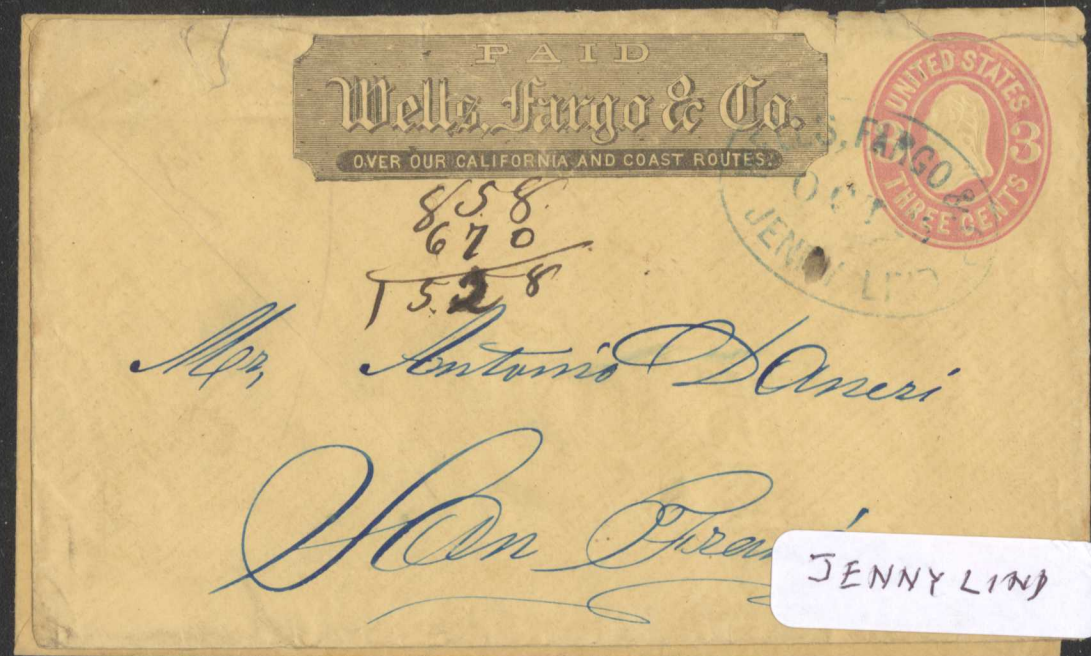 PAID
Wells, Fargo & Co.
OVER OUR CALIFORNIA AND COAST ROUTES.
UNITED STATES
3 3
THREE CENTS
WELLS, FARGO &
OCT
JENNY LIND
858.
670
1528
Mr, Antonio DAneri
San Fran
JENNY LIND